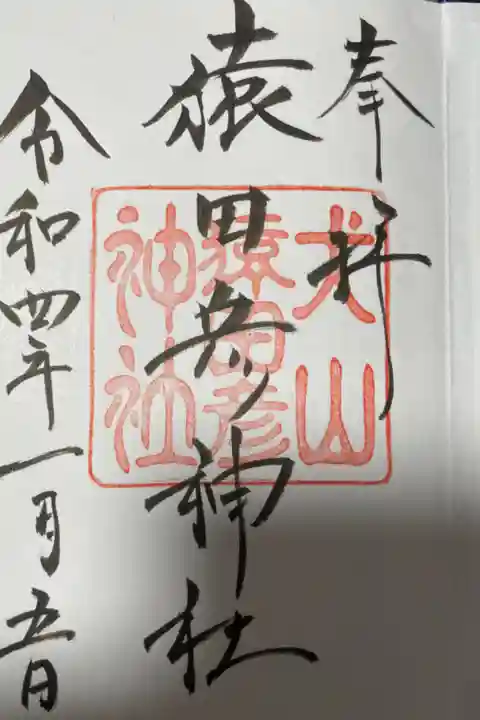 奉拝
猿田彦神社
令和四年一月五日
犬山
猿田彦
神社